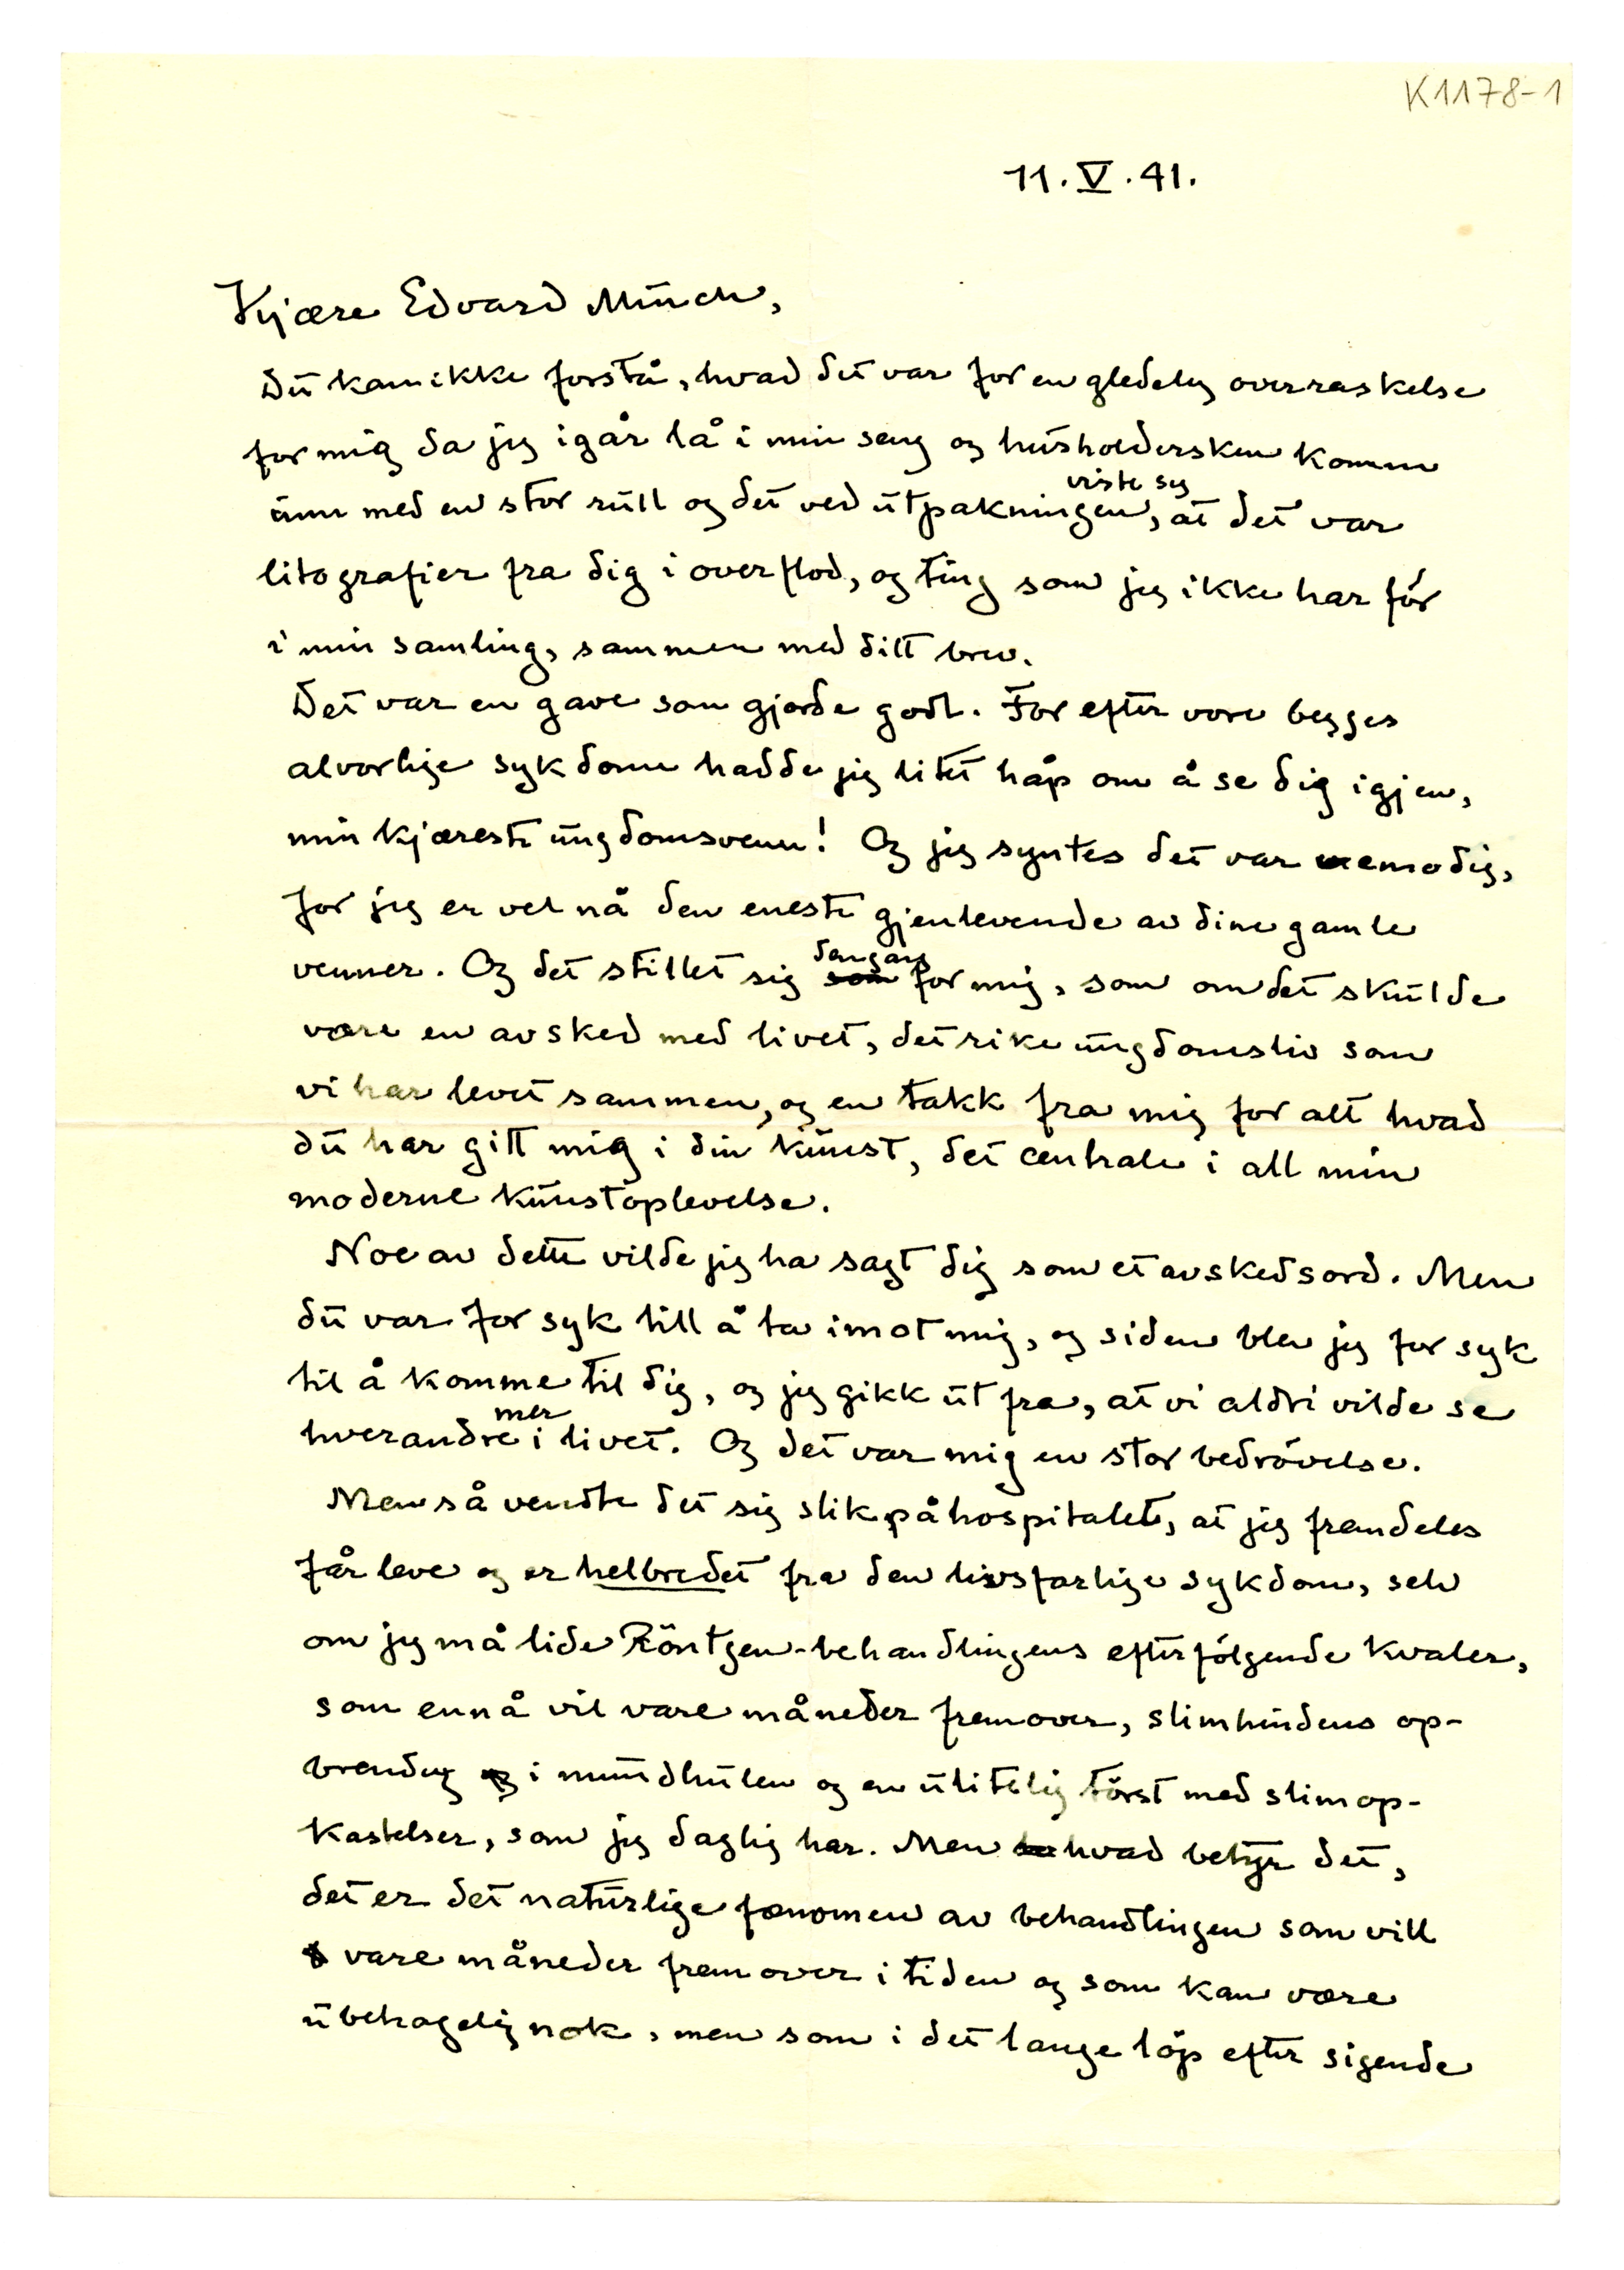 K1178-1
11. V. 41.
Kjære Edvard Munch,
Du kan ikke forstå, hvad det var for en gledelig overraskelse
for mig da jeg igår lå i min seng og husholdersken komm
inn med en stor rull og det ved utpakningen, viste sig at det var
litografier fra dig i overflod, og ting som jeg ikke har før
i min samling, sammen med ditt brev.
Det var en gave som gjorde godt. For efter vore begges
alvorlige sykdom hadde jeg litet håp om å se dig igjen,
min kjæreste ungdomsvenn! Og jeg syntes det var vemodig,
for jeg er vel nå den eneste gjenlevende av dine gamle
venner. Og det stillet sig som dengang for mig, som om det skulde
være en avsked med livet, det rike ungdomsliv som
vi har levet sammen, og en takk fra mig for alt hvad
du har gitt mig i din kunst, det centrale i all min
moderne kunstoplevelse.
Noe av dette vilde jeg ha sagt dig som et avskedsord. Men
du var for syk till å ta imot mig, og siden blev jeg for syk
til å komme til dig, og jeg gikk ut fra, at vi aldri vilde se
hverandre mer i livet. Og det var mig en stor bedrøvelse.
Men så vendte det sig slik på hospitalet, at jeg fremdeles
får leve og er helbredet fra den livsfarlige sykdom, selv
om jeg må lide Röntgen-behandlingens efterfølgende kvaler,
som ennå vil vare måneder fremover, slimhindens op-
brending og i mundhulen og en ulitelig törst med slimop-
kastelser, som jeg daglig har. Men hvad betyr det,
det er det naturlige fænomen av behandlingen som vill
vare måneder fremover i tiden og som kan være
ubehagelig nok, men som i det lange løp efter sigende